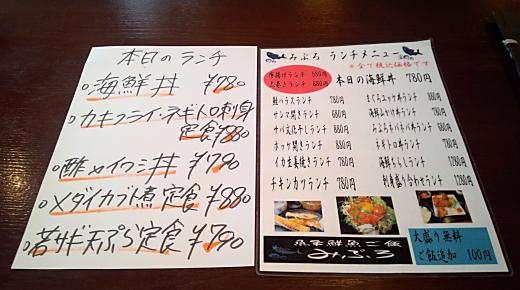 本日のランチ
○海鮮丼 ¥780
○カキフライ・ネギトロ刺身
定食¥880
○酢〆イワシ丼 ¥790
○メダイカブト煮定食 ¥880
○若サギ天ぷら定食 ¥790
みぶろ ランチメニュー
※全て税込価格です
唐揚げランチ 580円
太巻きランチ 680円
本日の海鮮丼 780円
鮭ハラスランチ 780円
サンマ開きランチ 680円
サバ文化干しランチ 680円
ホッケ開きランチ 680円
イカ生姜焼きランチ 780円
チキンカツランチ 780円
まぐろユッケ丼ランチ
海鮮ぶっかけ丼ランチ
ネギトロ丼ランチ
海鮮ちらしランチ 1280円
刺身盛り合わせランチ 1280円
魚菜鮮魚ご飯
みぶろ
大盛り無料
ご飯追加 100円